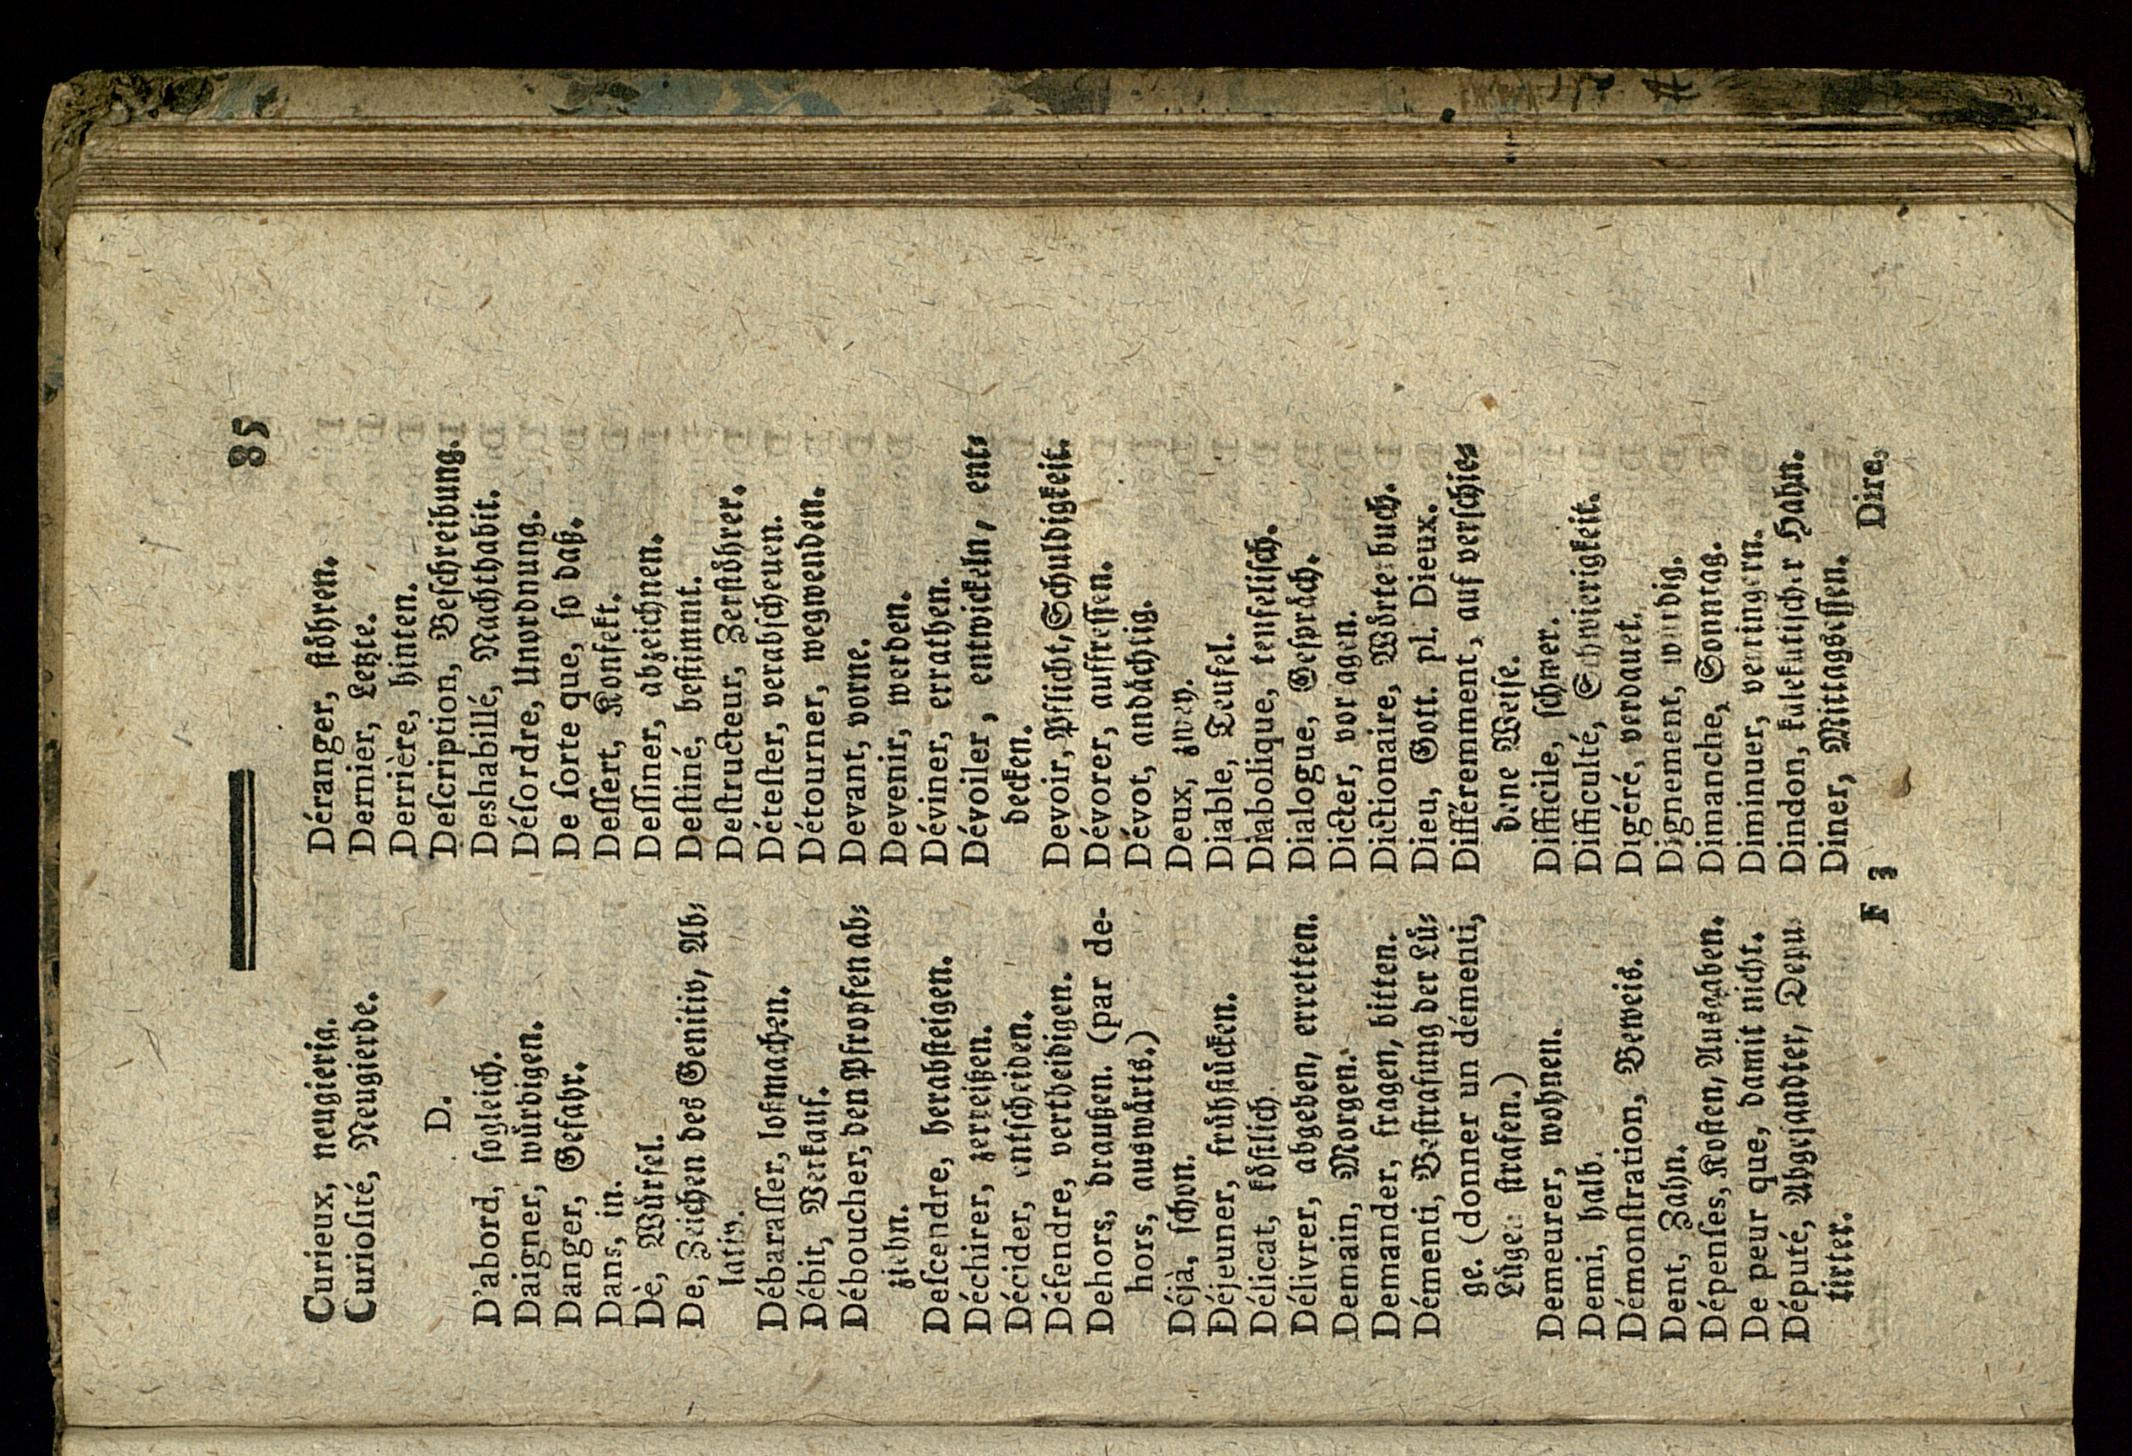 85
Curieux, neugierig.
Curioſité, Neugierde.
D.
D'abord, ſogleich.
Daigner, würdigen.
Danger, Gefahr.
Dans, in.
Dè, Würfel.
De, Zeichen des Genitiv, Ab⸗
lativ.
Débaraſſer, loßmachen.
Débit, Verkauf.
Déboucher, den Pfropfen ab⸗
ziehn.
Deſcendre, herabſteigen.
Déchirer, zerreißen.
Décider, entſcheiden.
Défendre, vertheidigen.
Dehors, draußen. (par de-
hors, auswärts.)
Déjà, ſchon.
Déjeuner, frühſtücken.
Délicat, köſtlich.
Délivrer, abgeben, erretten.
Demain, Morgen.
Demander, fragen, bitten.
Démenti, Beſtrafung der Lü⸗
ge. (donner un démenti,
Lügen ſtrafen.)
Demeurer, wohnen.
Demi, halb.
Démonſtration, Beweis.
Dent, Zahn.
Dépenſes, Koſten, Ausgaben.
De peur que, damit nicht.
Député, Abgeſandter, Depu⸗
tirter.
Déranger, ſtöhren.
Dernier, Letzte.
Derrière, hinten.
Deſcription, Beſchreibung.
Deshabillé, Nachthabit.
Déſordre, Unordnung.
De ſorte que, ſo daß.
Deſſert, Konfekt.
Deſſiner, abzeichnen.
Deſtiné, beſtimmt.
Deſtructeur, Zerſtöhrer.
Déteſter, verabſcheuen.
Détourner, wegwenden.
Devant, vorne.
Devenir, werden.
Déviner, errathen.
Dévoiler, entwickeln, ent⸗
decken.
Devoir, Pflicht, Schuldigkeit.
Dévorer, auffreſſen.
Dévot, andächtig.
Deux, zwey.
Diable, Teufel.
Diabolique, teufeliſch.
Dialogue, Geſpräch.
Dicter, vorſagen.
Dictionaire, Wörterbuch.
Dieu, Gott. pl. Dieux.
Différemment, auf verſchie⸗
dene Weiſe.
Difficile, ſchwer.
Difficulté, Schwierigkeit.
Digéré, verdauet.
Dignement, würdig.
Dimanche, Sonntag.
Diminuer, verringern.
Dindon, kulekutiſcher Hahn.
Diner, Mittagseſſen.
F 3
Dire,